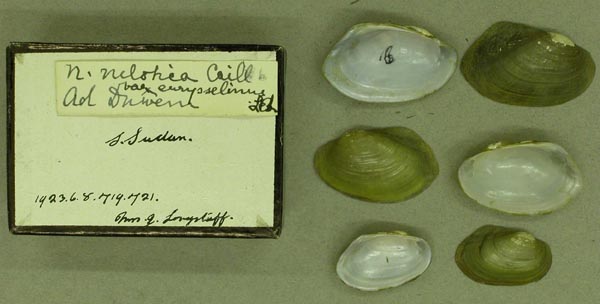 N. nilotica Caill
var eurysselinus
Ad Duwem
S. Sudan.
1923.6.8.719.721.
Mrs J. Longstaff.